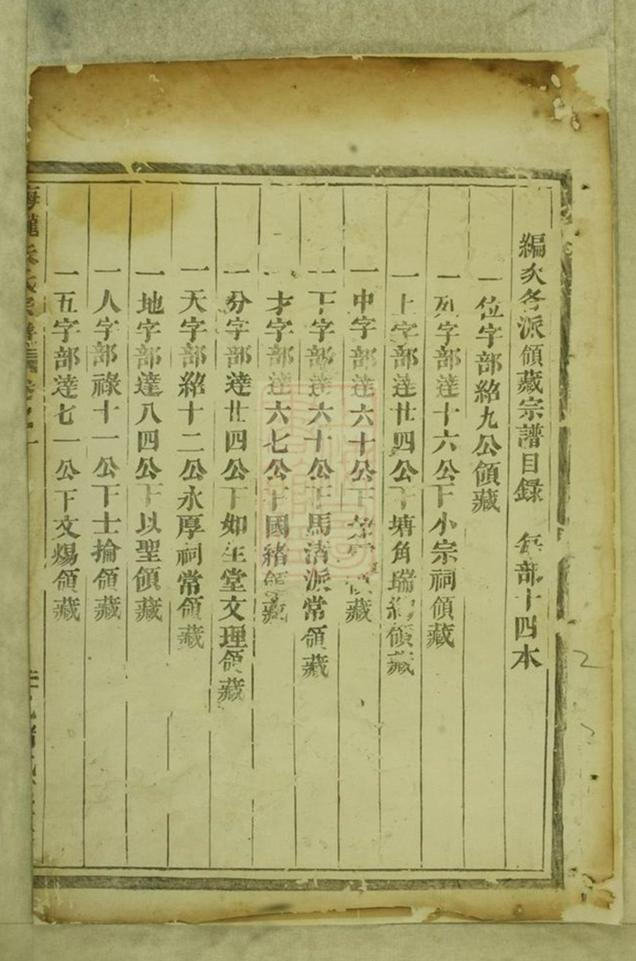 編次各派領藏宗譜目錄 每部十四本
一位字部紹九公領藏
一列字部達十六公下小宗祠領藏
一上字部達廿四公下塘角瑞領藏
一中字部達六十公下領藏
一下字部達六十公下馬渚派常領藏
一才字部達六七公下國緒領藏
一分字部達廿四公下如在堂文理領藏
一天字部紹十二公永厚祠常領藏
一地字部達八四公下以聖領藏
一人字部祿十一公下士掄領藏
一五字部達七一公下文煬領藏